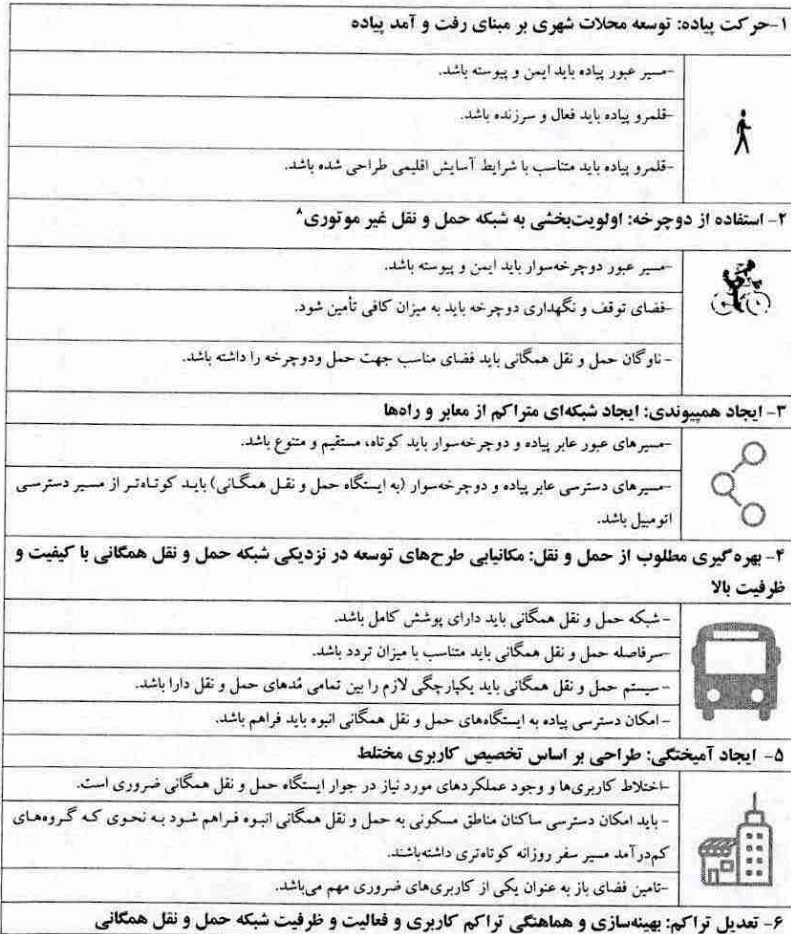 ۱-حرکت پیاده: توسعه محلات شهری بر مبنای رفت و آمد پیاده
-مسیر عبور پیاده باید ایمن و پیوسته باشد.
-قلمرو پیاده باید فعال و سرزنده باشد.
-قلمرو پیاده باید متناسب با شرایط آسایش اقلیمی طراحی شده باشد.
۲- استفاده از دوچرخه: اولویت‌بخشی به شبکه حمل و نقل غیر موتوری۸
-مسیر عبور دوچرخه‌سوار باید ایمن و پیوسته باشد.
-فضای توقف و نگهداری دوچرخه باید به میزان کافی تأمین شود.
- ناوگان حمل و نقل همگانی باید فضای مناسب جهت حمل ودوچرخه را داشته باشد.
۳- ایجاد همپیوندی: ایجاد شبکه‌ای متراکم از معابر و راه‌ها
-مسیرهای عبور عابر پیاده و دوچرخه‌سوار باید کوتاه، مستقیم و متنوع باشد.
-مسیرهای دسترسی عابر پیاده و دوچرخه‌سوار (به ایستگاه حمل و نقل همگانی) باید کوتاه‌تر از مسیر دسترسی
اتومبیل باشد.
۴- بهره‌گیری مطلوب از حمل و نقل: مکانیابی طرح‌های توسعه در نزدیکی شبکه حمل و نقل همگانی با کیفیت و
ظرفیت بالا
- شبکه حمل و نقل همگانی باید دارای پوشش کامل باشد.
-سرفاصله حمل و نقل همگانی باید متناسب با میزان تردد باشد.
- سیستم حمل و نقل همگانی باید یکپارچگی لازم را بین تمامی مُدهای حمل و نقل دارا باشد.
- امکان دسترسی پیاده به ایستگاه‌های حمل و نقل همگانی انبوه باید فراهم باشد.
۵- ایجاد آمیختگی: طراحی بر اساس تخصیص کاربری مختلط
-اختلاط کاربری‌ها و وجود عملکردهای مورد نیاز در جوار ایستگاه حمل و نقل همگانی ضروری است.
- باید امکان دسترسی ساکنان مناطق مسکونی به حمل و نقل همگانی انبوه فراهم شود به نحوی که گروه‌های
کم‌درآمد مسیر سفر روزانه کوتاه‌تری داشته‌باشند.
-تامین فضای باز به عنوان یکی از کاربری‌های ضروری مهم می‌باشد.
۶- تعدیل تراکم: بهینه‌سازی و هماهنگی تراکم کاربری و فعالیت و ظرفیت شبکه حمل و نقل همگانی